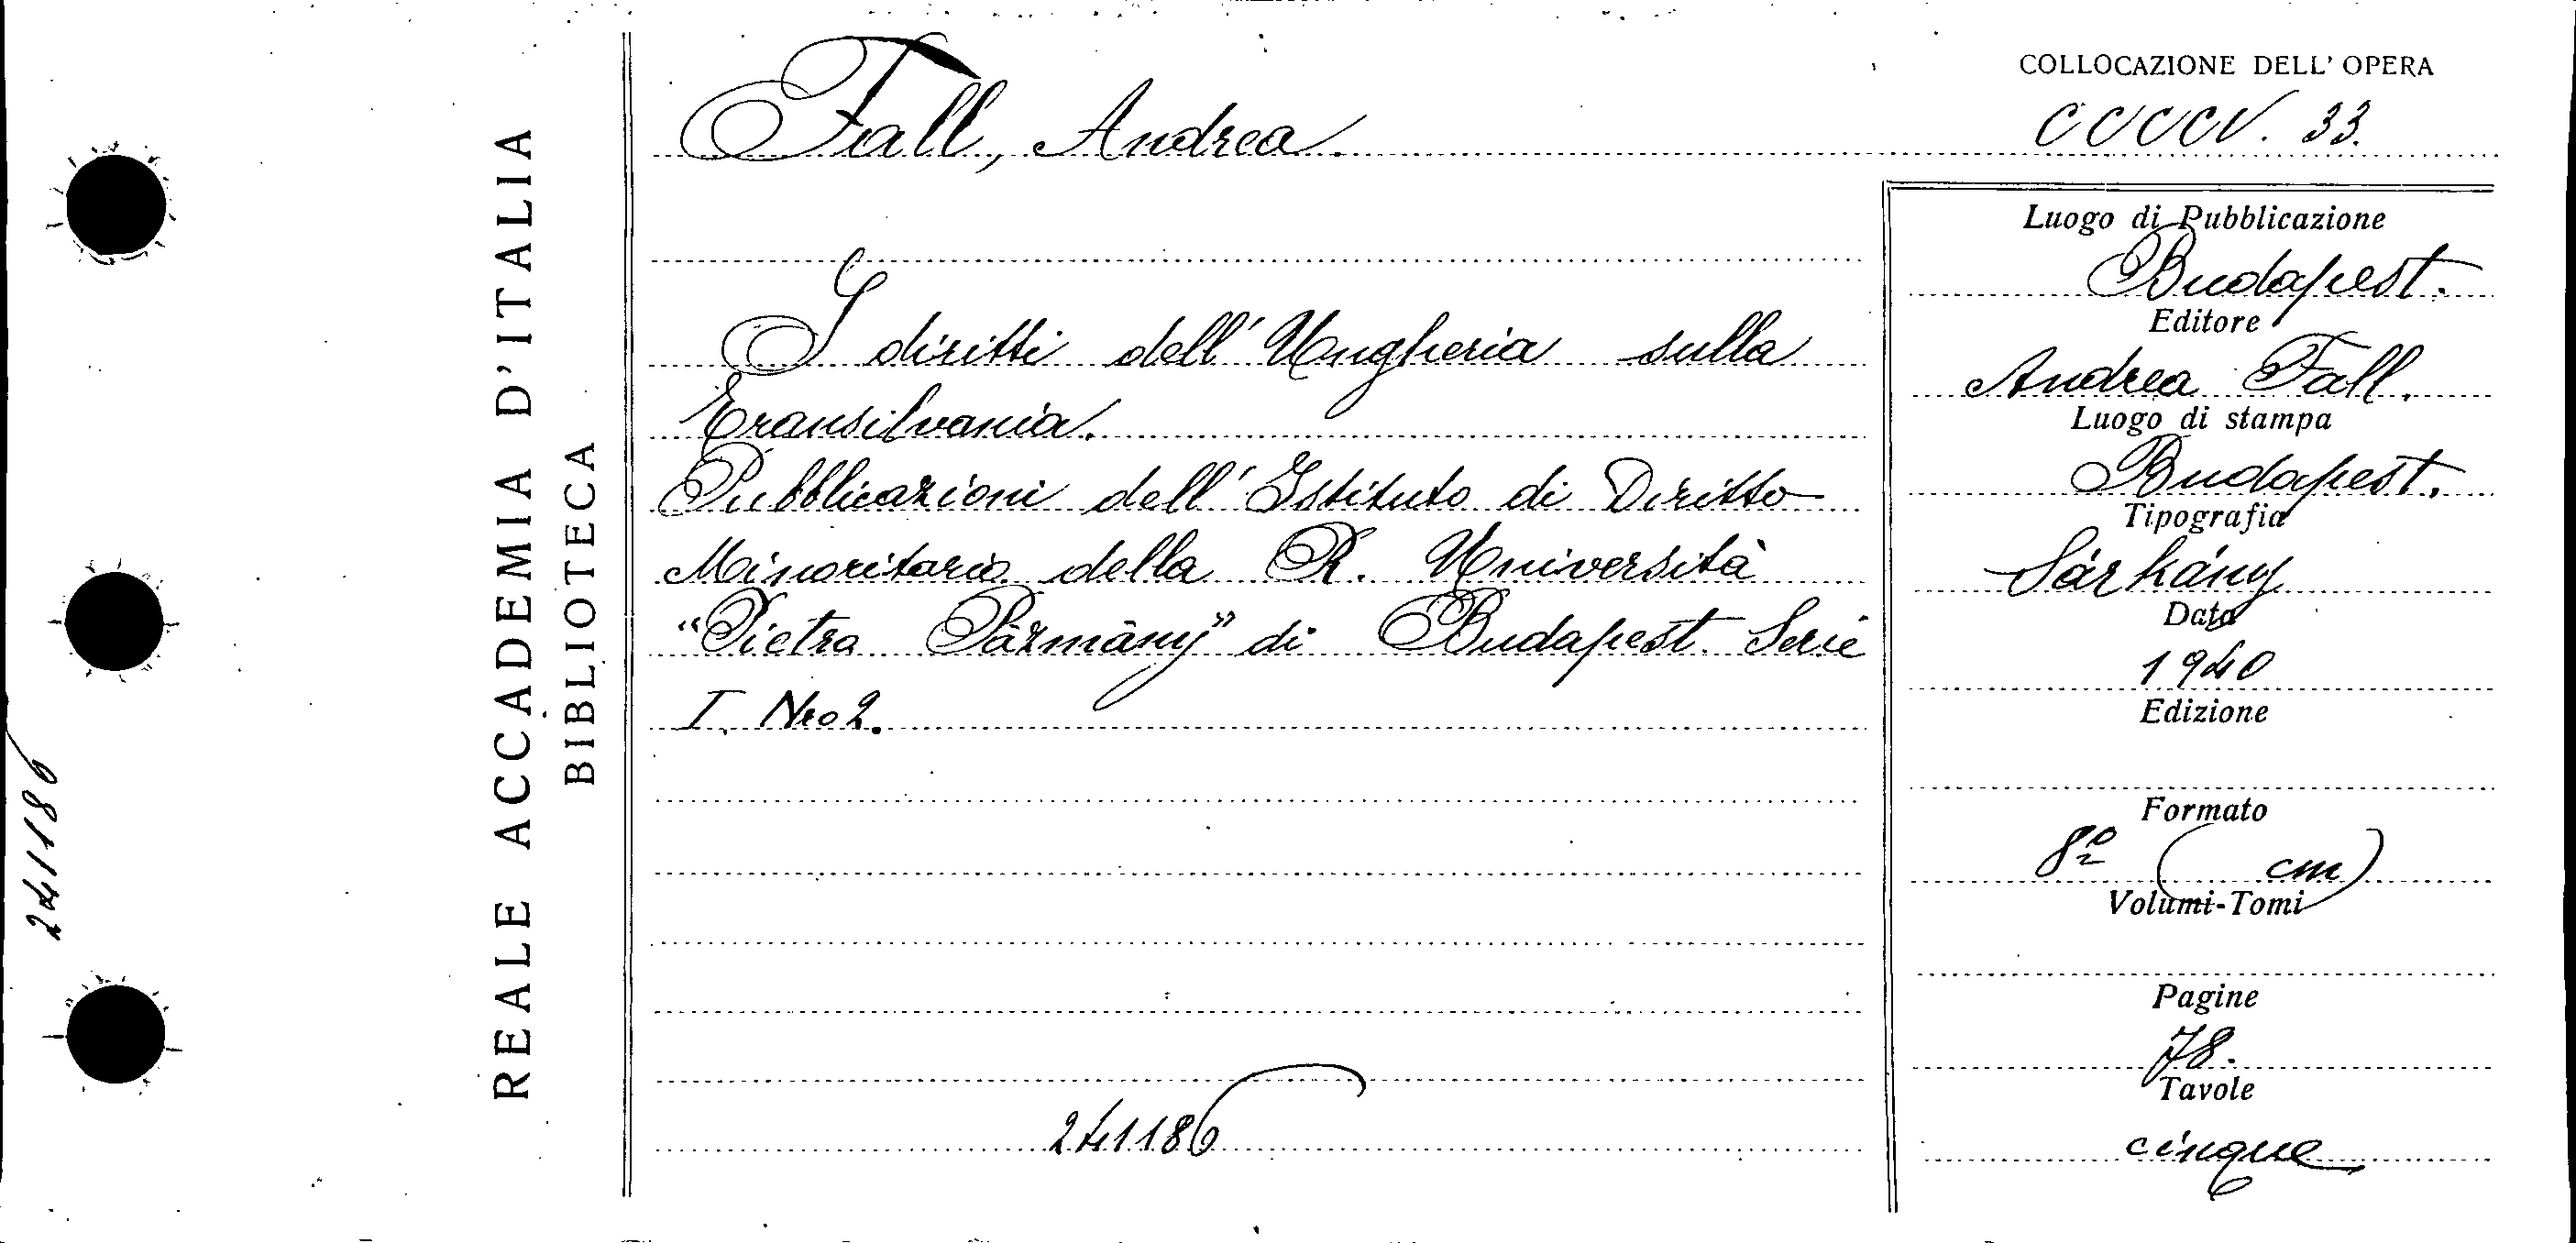 REALE ACCADEMIA D'ITALIA
BIBLIOTECA
241186
Fall, Andrea.
I diritti dell'Ungheria sulla
Transilvania.
Pubblicazioni dell'Istituto di Diritto
Minoritario della R. Università
"Pietra Pázmány" di Budapest. Serie
I. Nro 2.
241186
COLLOCAZIONE DELL'OPERA
CCCCV. 33.
Luogo di Pubblicazione
Budapest.
Editore
Andrea Fall.
Luogo di stampa
Budapest.
Tipografia
Sárkány
Data
1940
Edizione
Formato
8º ( cm)
Volumi-Tomi
Pagine
78.
Tavole
cinque